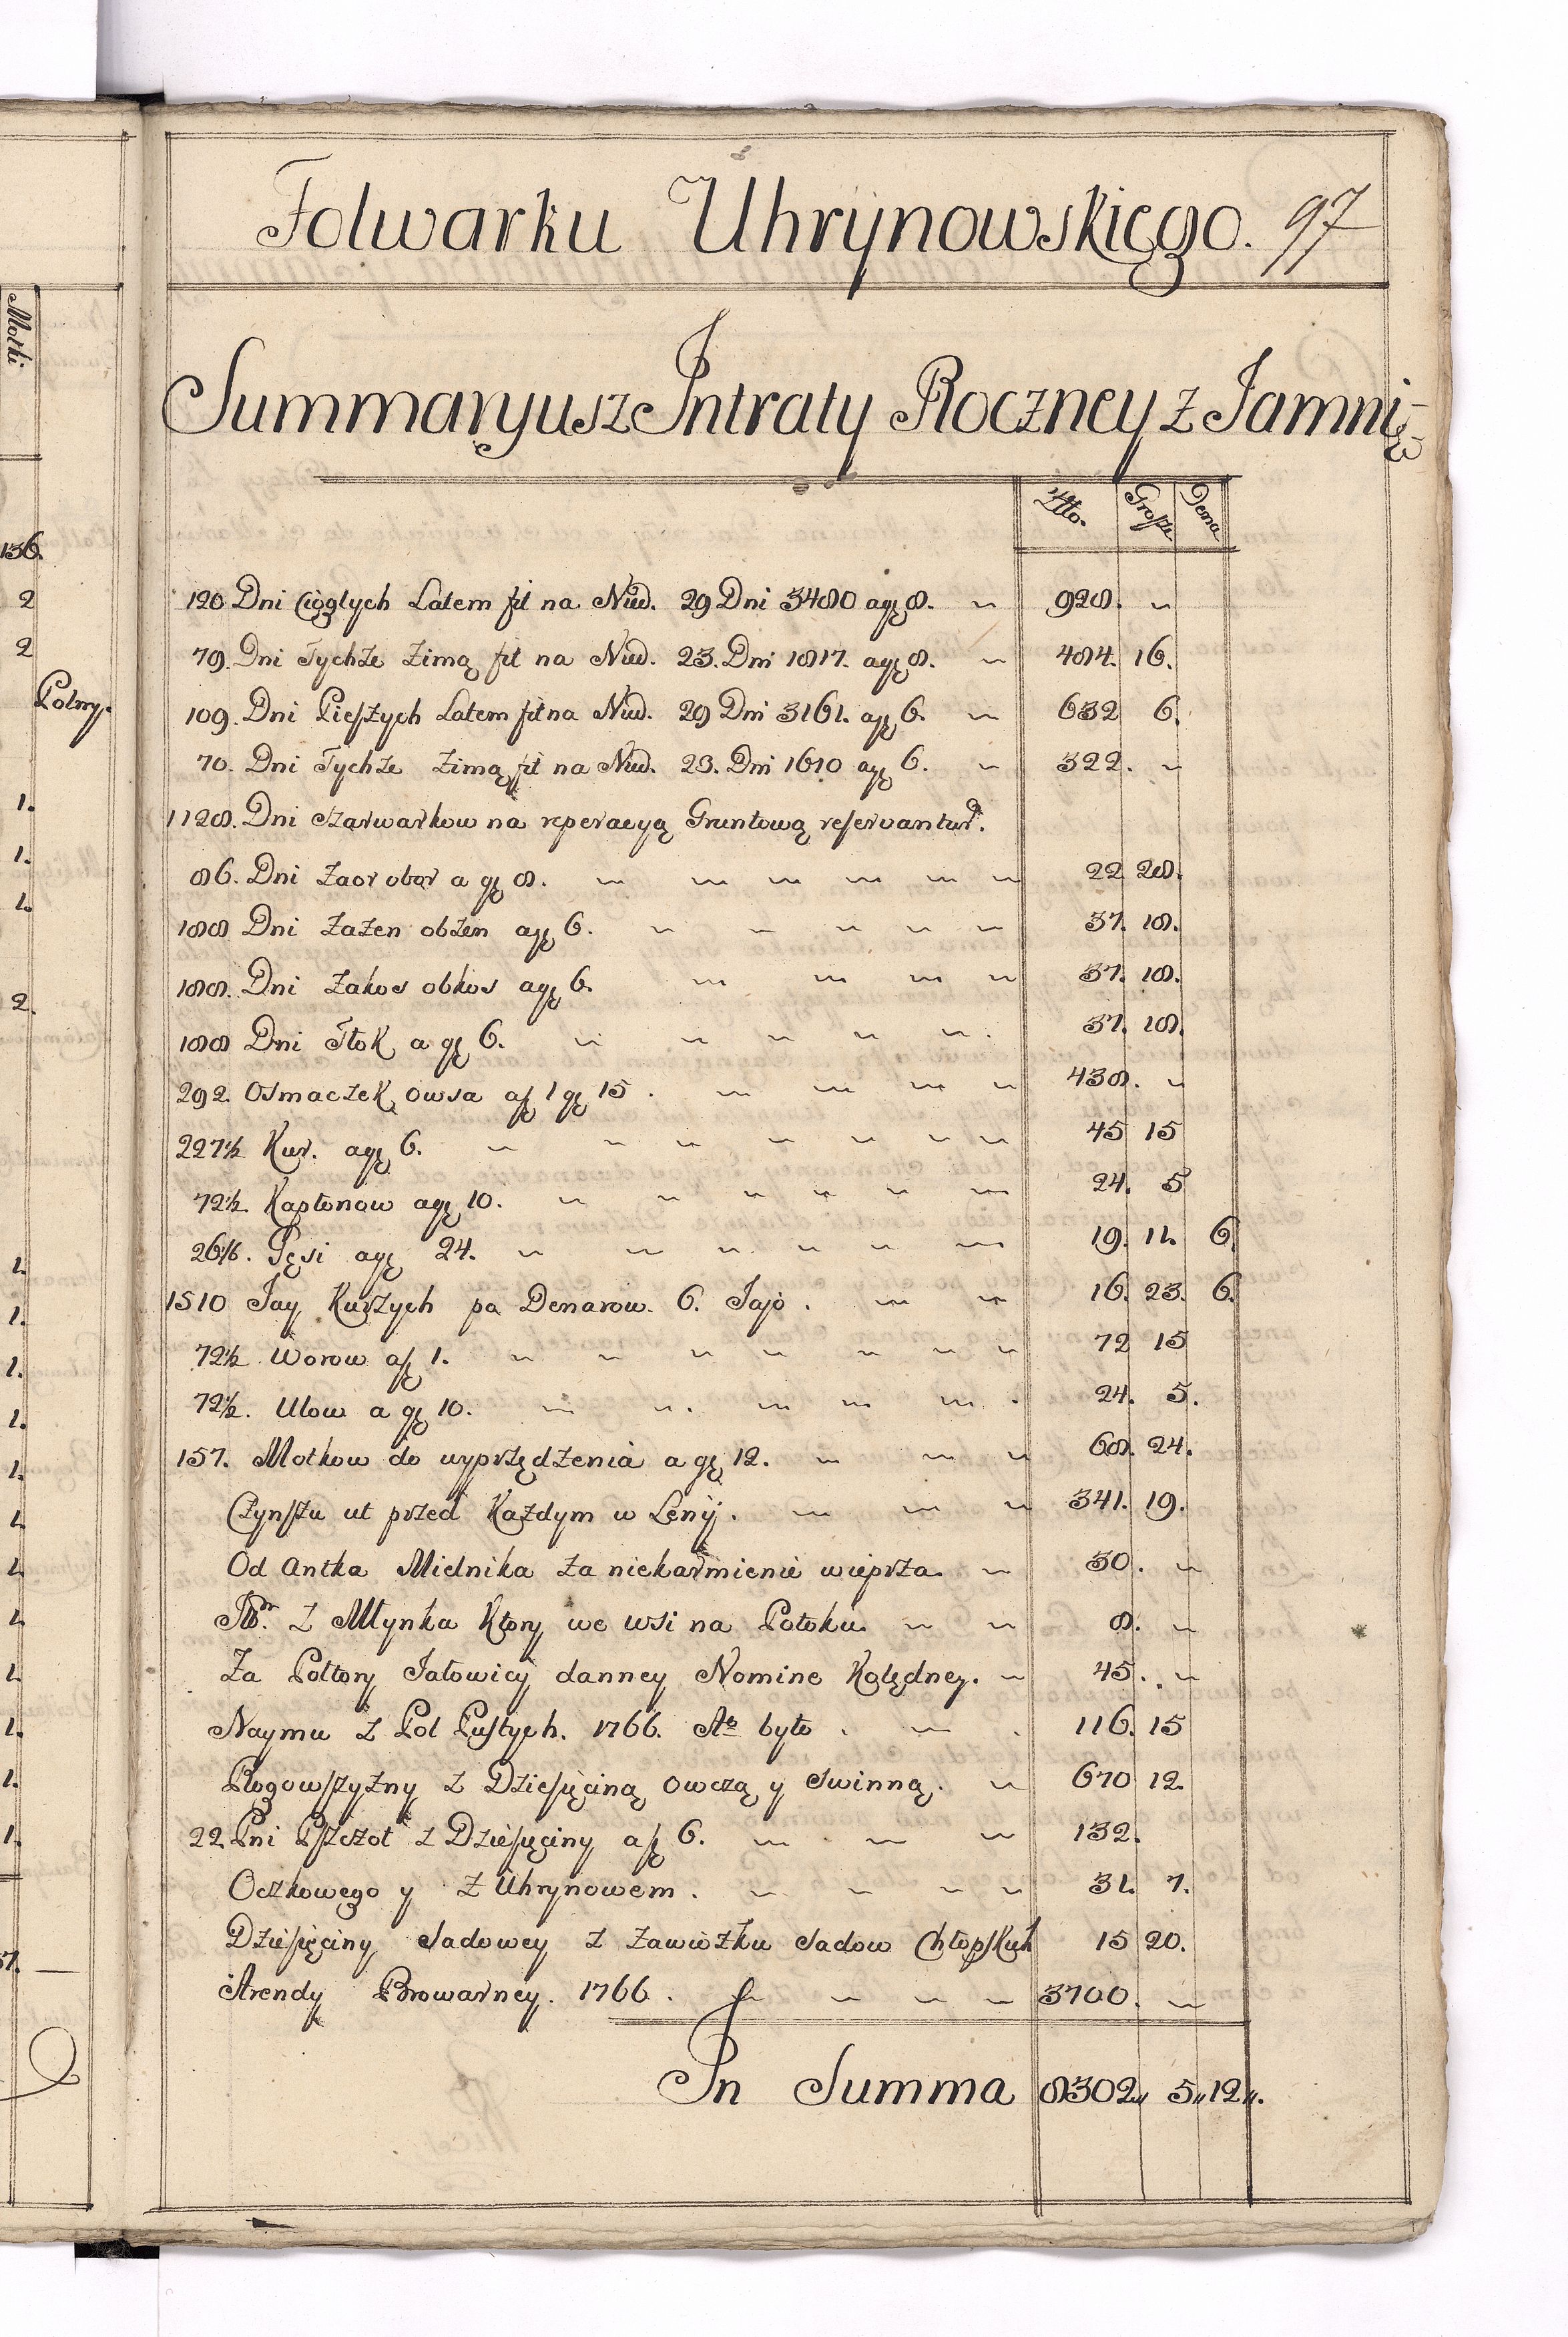 Folwarku Uhrynowskięgo. 97
Summaryusz Intraty Roczney z Jamni
Złło. Grosze Dena
120 Dni Ciągłych Latem fit na Nied. 29 Dni 3480 a gę 8. 928.
79. Dni Tychże Zimą fit na Nied. 23. Dni 1817. a gę 8. 484. 16.
109. Dni Pieszych Latem fit na Nied. 29 Dni 3161. a gę 6. 632 6.
70. Dni Tychże Zimą fit na Nied. 23. Dni 1610 a gę 6. 322.
1128. Dni Szarwarkow na reperacyą Gruntową reservantur.
86. Dni Zaor obor a gę 8. 22 28.
188 Dni Zażen obżen a gę 6. 37. 18.
188. Dni Zakos obkos a gę 6. 37. 18.
188 Dni Tłok a gę 6. 37. 18.
292. Osmaczek owsa a f 1 gę 15. 438.
227½ Kur. a gę 6. 45 15
72½ Kapłonow a gę 10. 24. 5
26⅙. Gęsi a gę 24. 19. 11. 6.
1510 Jay Kurzych po Denarow. 6. Jajo. 16. 23. 6.
72½ Worow a f 1. 72 15
72½. Ulow a gę 10. 24. 5.
157. Motkow do uyprzędzenia a gę 12. 68. 24.
Czynszu ut przed Każdym w Lenij. 341. 19.
Od Antka Mielnika za niekarmienie wieprza 30.
z Młynka Ktory we wsi na Potoku 8.
Za Połtory Jałowicy danney Nomine Kolędney. 45.
Naymu z Pol Pustych. 1766. Ao było. 116. 15
Rogowszyzny z Dziesięciną owczą y swinną. 670 12
22. Pni Pszczoł z Dziesięciny a f 6. 132.
Oczkowego y z Uhrynowem. 31. 7.
Dziesięciny Sadowey z zawiozku sadow Chłopskich 15 20.
Arendy Browarney. 1766. 3700.
In Summa 8302,, 5,, 12,,.
Motki
136.
2
2
Polny.
1.
1.
1.
2.
1.
1.
1.
1.
1.
1.
1.
1.
1.
1.
1.
1.